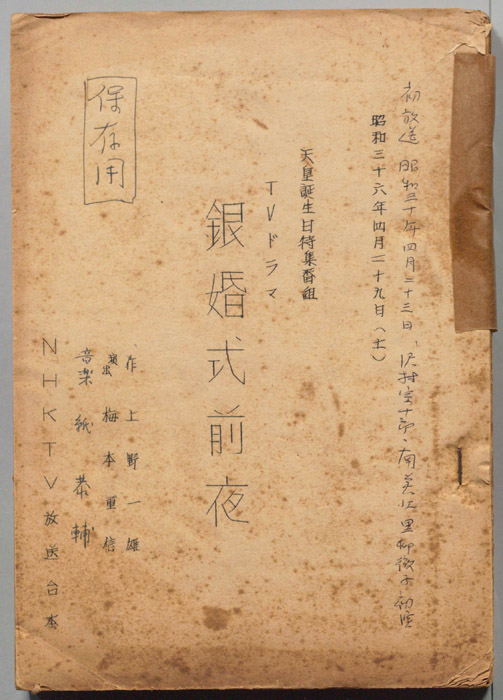 初放送 昭和三十年四月二十三日、沢村宗十郎・南美江 黒柳徹子初演
昭和三十六年四月二十九日(土)
天皇誕生日特集番組
TVドラマ
銀婚式前夜
作 上野一雄
演出 梅本重信
音楽 紙恭輔
保存用
NHKTV放送台本